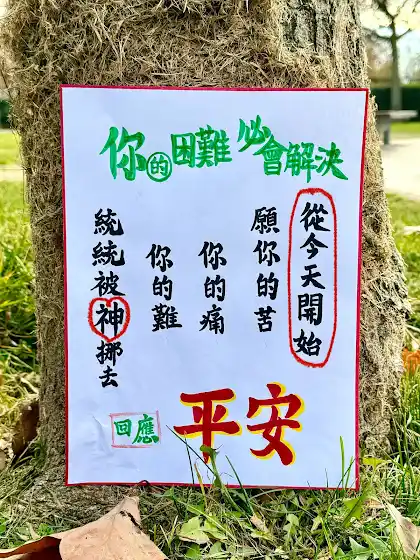 你的困難必會解決
從今天開始
願你的苦
你的痛
你的難
統統被神挪去
回應
平安